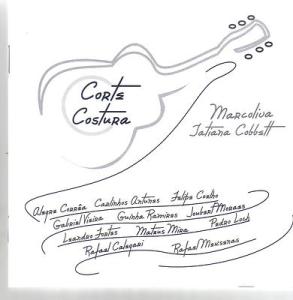 Corte
Costura
Marcoliva
Tatiana Cobbett
Alegre Corrêa Carlinhos Antunes Felipe Coelho
Gabriel Vieira Guinha Ramires Joubert Moraes
Leandro Fortes Mateus Mira Pedro Loch
Rafael Calegari Rafael Meksenas